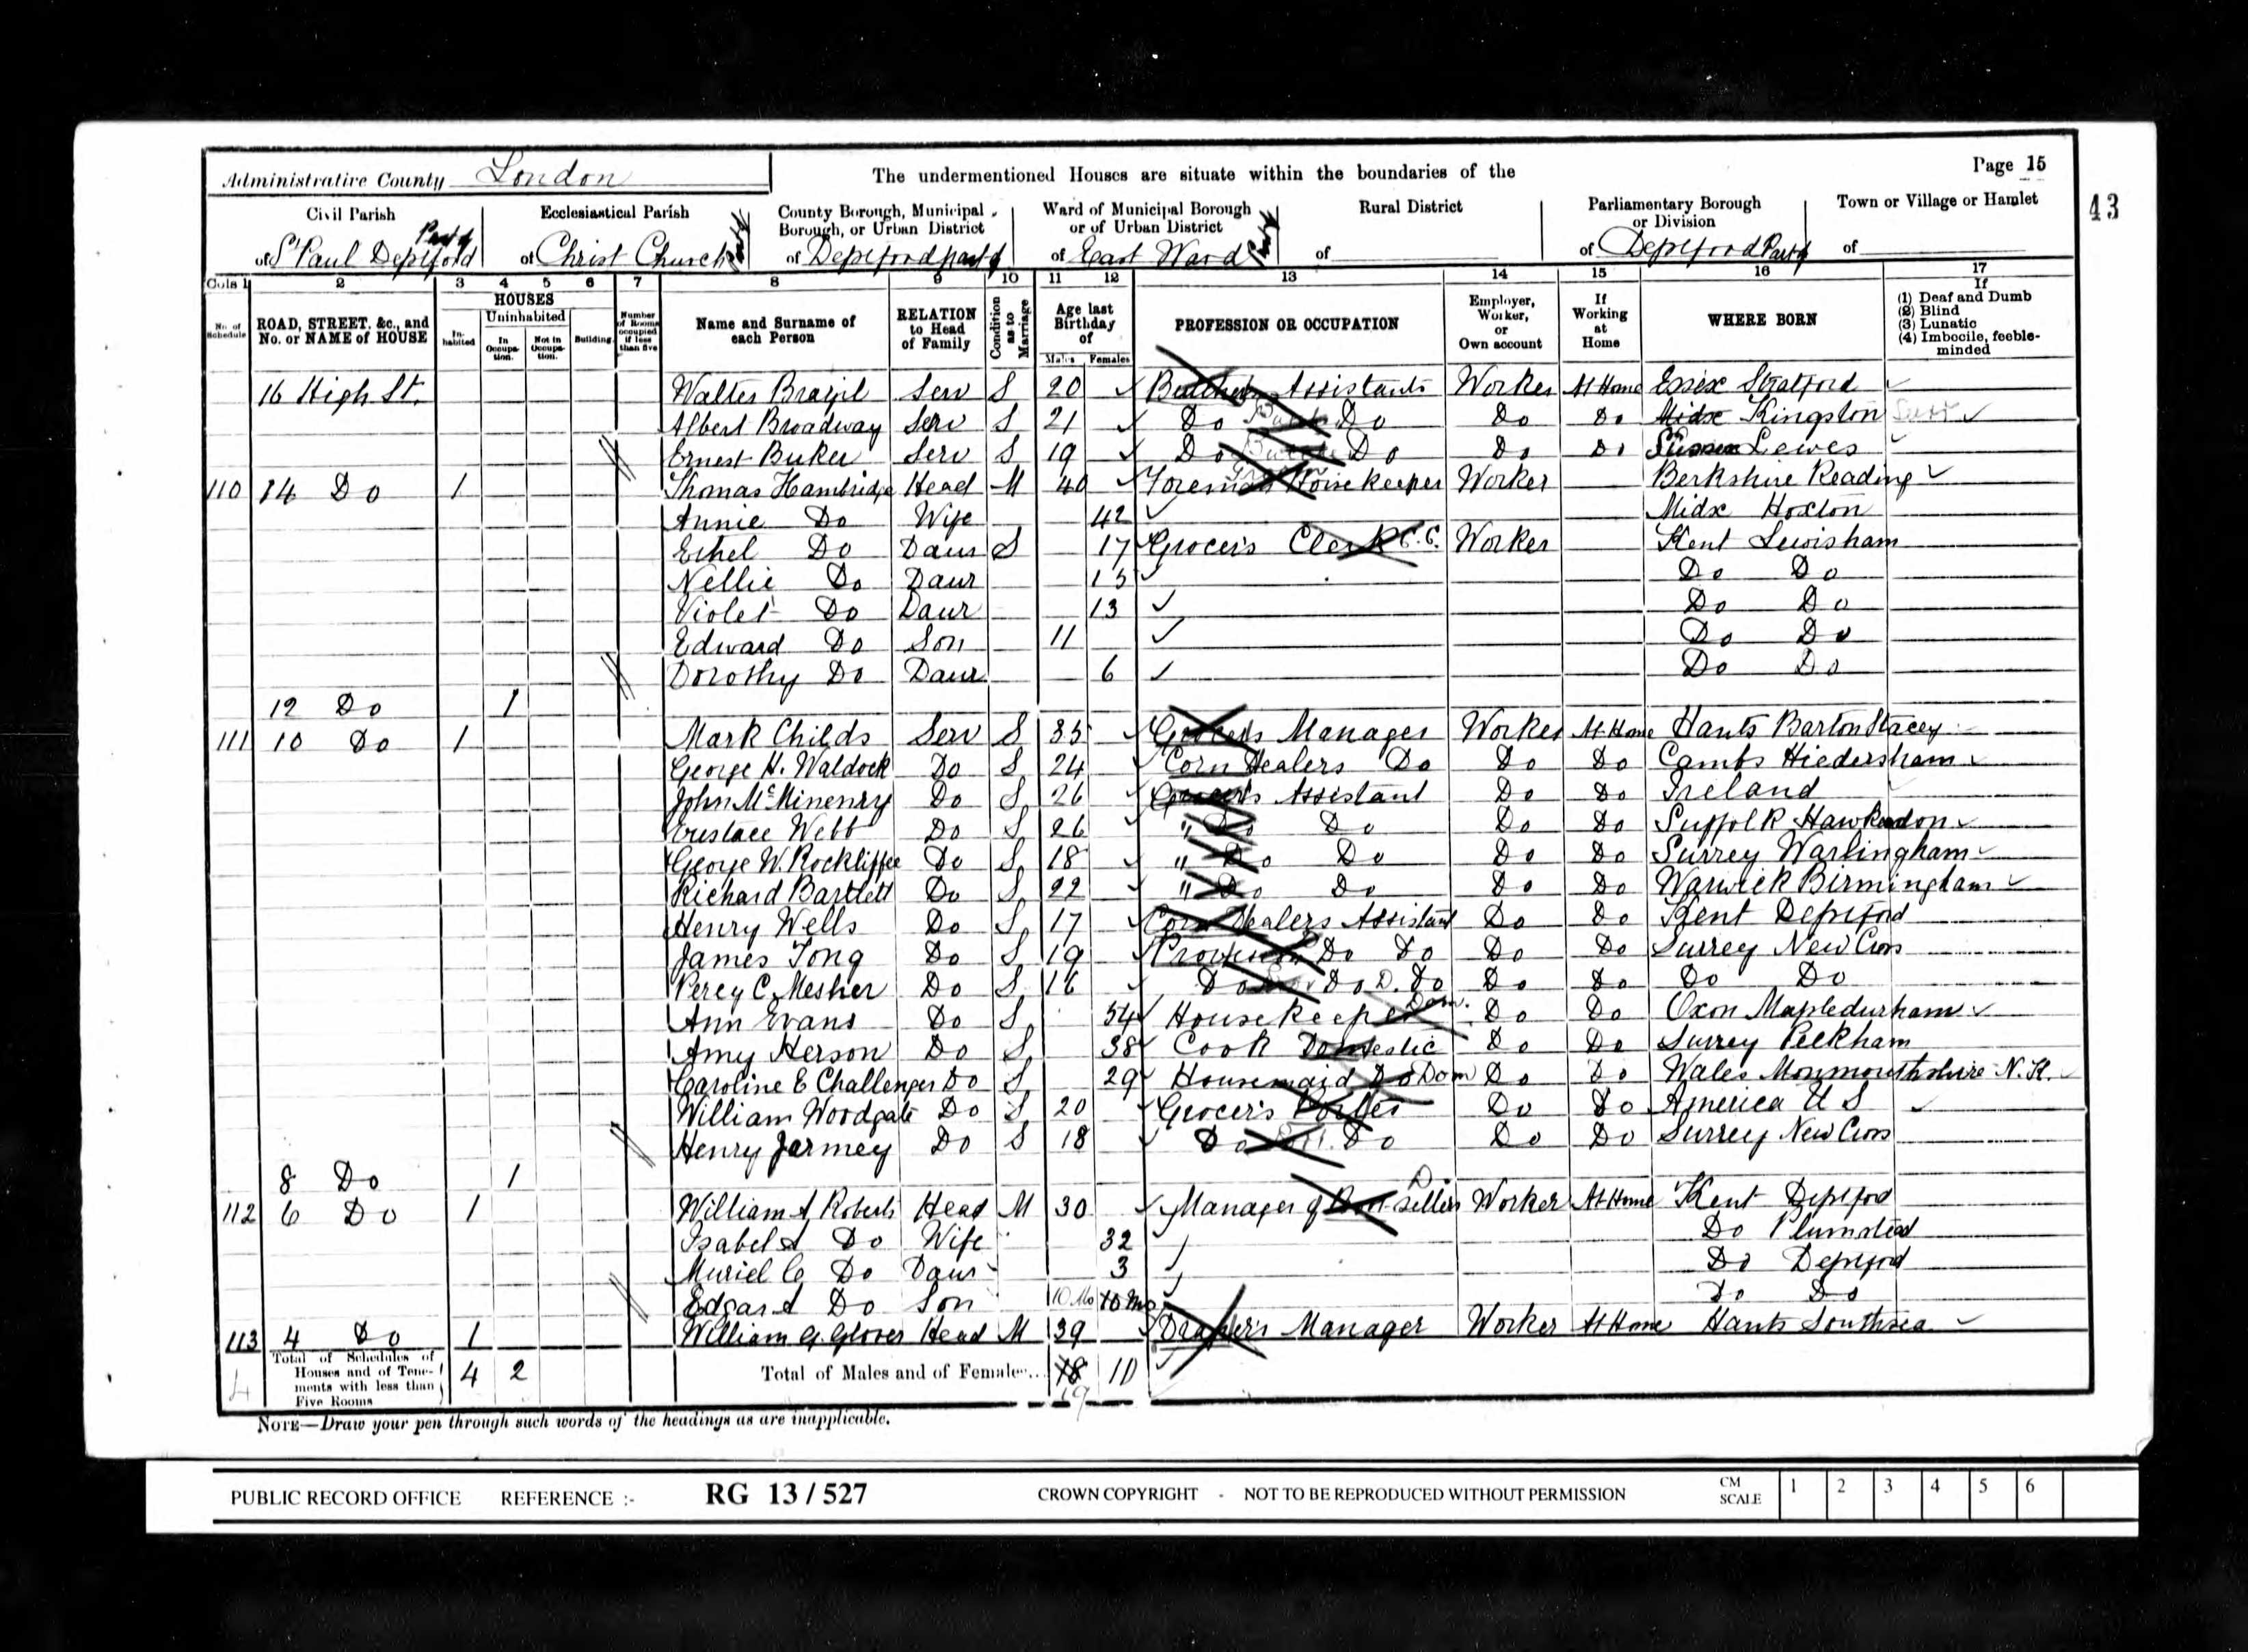 Page 15
43
Administrative County London
The undermentioned Houses are situate within the boundaries of the
Civil Parish of St Paul Deptford Part of
Ecclesiastical Parish of Christ Church
County Borough, Municipal Borough, or Urban District of Deptford part of
Ward of Municipal Borough or of Urban District of East Ward
Rural District of
Parliamentary Borough or Division of Deptford Part of
Town or Village or Hamlet of
Cols 1 2 3 4 5 6 7 8 9 10 11 12 13 14 15 16 17
No. of Schedule
ROAD, STREET, &c., and No. or NAME of HOUSE
HOUSES
In-habited
Uninhabited
In Occupa-tion.
Not in Occupa-tion.
Building.
Number of Rooms occupied if less than five
Name and Surname of each Person
RELATION to Head of Family
Condition as to Marriage
Age last Birthday of
Males Females
PROFESSION OR OCCUPATION
Employer, Worker, or Own account
If Working at Home
WHERE BORN
If
(1) Deaf and Dumb
(2) Blind
(3) Lunatic
(4) Imbecile, feeble-minded
16 High St. Walter Brazil Serv S 20 Assistants Worker At Home Essex Stratford
Albert Broadway Serv S 21 Do Do Do Do Midx Kingston
Ernest Buker Serv S 19 Do Do Do Do Sussex Lewes
110 14 Do 1 Thomas Hambridge Head M 40 Foreman Horsekeeper Worker Berkshire Reading
Annie Do Wife 42 Midx Hoxton
Ethel Do Daur S 17 Grocer's Clerk C.C. Worker Kent Lewisham
Nellie Do Daur 15 Do Do
Violet Do Daur 13 Do Do
Edward Do Son 11 Do Do
Dorothy Do Daur 6 Do Do
12 Do 1
111 10 Do 1 Mark Childs Serv S 35 Grocer's Manager Worker At Home Hants Barton Stacey
George H. Waldock Do S 24 Corn Dealers Do Do Do Cambs Hiedersham
John McMinenry Do S 26 Grocer's Assistant Do Do Ireland
Eustace Webb Do S 26 " Do Do Do Do Suffolk Hawkedon
George W. Rockliffe Do S 18 " Do Do Do Do Surrey Warlingham
Richard Bartlett Do S 22 " Do Do Do Do Warwick Birmingham
Henry Wells Do S 17 Corn Dealers Assistant Do Do Kent Deptford
James Tong Do S 19 Do Do Do Do Surrey New Cross
Percy C. Mesher Do S 16 Do Do D. Do Do Do Do Do
Ann Evans Do S 54 Housekeeper Dom. Do Do Oxon Mapledurham
Amy Herson Do S 38 Cook Domestic Do Do Surrey Peckham
Caroline E Challenger Do S 29 Housemaid Do Dom Do Do Wales Monmouthshire N.K.
William Woodgate Do S 20 Grocer's Porter Do Do America U S
Henry Jermey Do S 18 Do Do Do Do Surrey New Cross
8 Do 1
112 6 Do 1 William A Roberts Head M 30 Manager of sellers Worker At Home Kent Deptford
Isabel A Do Wife 32 Do Plumstead
Muriel C Do Daur 3 Do Deptford
Edgar A Do Son 10 Mo 10 Mo Do Do
113 4 Do 1 William G. Glover Head M 39 Draper's Manager Worker At Home Hants Southsea
4
Total of Schedules of Houses and of Tene-ments with less than Five Rooms 4 2
Total of Males and of Females... 18 11
19
NOTE—Draw your pen through such words of the headings as are inapplicable.
PUBLIC RECORD OFFICE REFERENCE :- RG 13 / 527 CROWN COPYRIGHT - NOT TO BE REPRODUCED WITHOUT PERMISSION CM SCALE 1 2 3 4 5 6